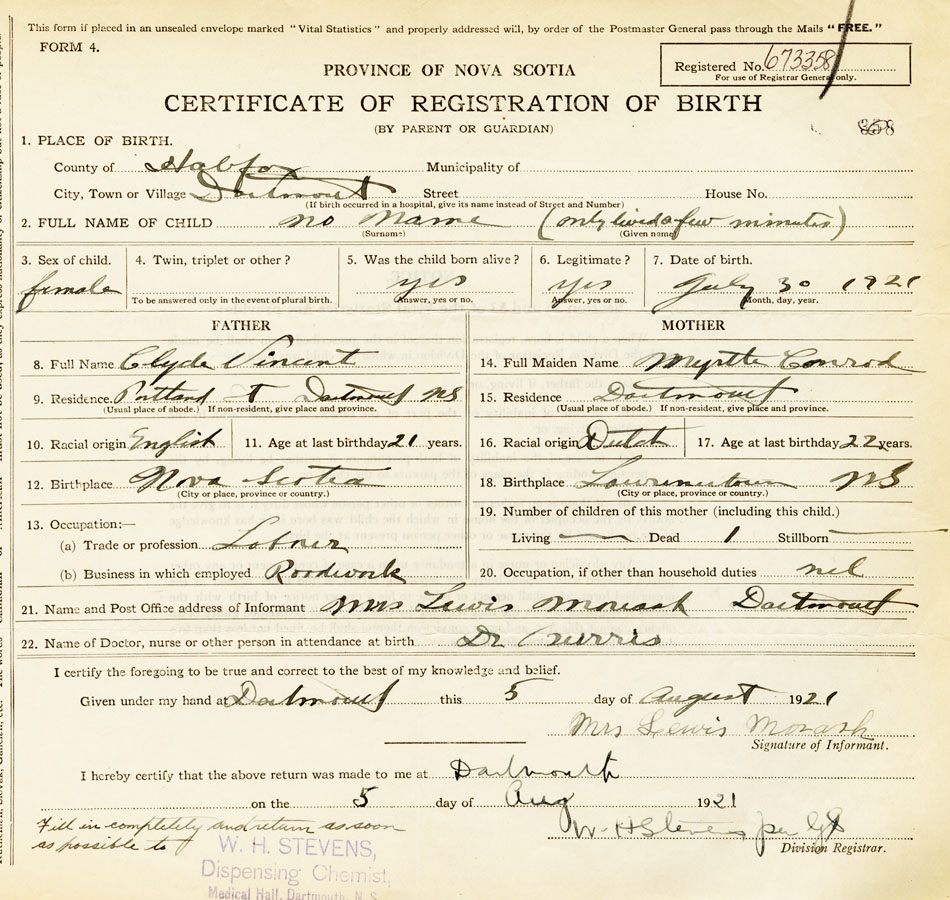 This form if placed in an unsealed envelope marked "Vital Statistics" and properly addressed will, by order of the Postmaster General pass through the Mails "FREE."
FORM 4.
Registered No. 673358
For use of Registrar General only.
PROVINCE OF NOVA SCOTIA
CERTIFICATE OF REGISTRATION OF BIRTH
(BY PARENT OR GUARDIAN)
1. PLACE OF BIRTH.
County of Halifax Municipality of
City, Town or Village Dartmouth Street House No.
(If birth occurred in a hospital, give its name instead of Street and Number)
2. FULL NAME OF CHILD no Name (only lived a few minutes)
(Surname) (Given name)
3. Sex of child. 4. Twin, triplet or other? 5. Was the child born alive? 6. Legitimate? 7. Date of birth.
female yes yes July 30 1921
To be answered only in the event of plural birth. Answer, yes or no. Answer, yes or no. Month, day, year.
FATHER MOTHER
8. Full Name Clyde Vincent 14. Full Maiden Name Myrtle Conrod
9. Residence. Portland St Dartmouth NS 15. Residence Dartmouth
(Usual place of abode.) If non-resident, give place and province. (Usual place of abode.) If non-resident, give place and province.
10. Racial origin English 11. Age at last birthday 21 years. 16. Racial origin Dutch 17. Age at last birthday 22 years.
12. Birthplace Nova Scotia 18. Birthplace Lawrencetown NS
(City or place, province or country.) (City or place, province or country.)
13. Occupation:— 19. Number of children of this mother (including this child.)
(a) Trade or profession Labrer Living — Dead 1 Stillborn —
(b) Business in which employed Roodwork 20. Occupation, if other than household duties nil
21. Name and Post Office address of Informant Mrs Lewis Morash Dartmouth
22. Name of Doctor, nurse or other person in attendance at birth Dr
I certify the foregoing to be true and correct to the best of my knowledge and belief.
Given under my hand at Dartmouth this 5 day of August 1921
Mrs Lewis Morash
Signature of Informant.
I hereby certify that the above return was made to me at Dartmouth
on the 5 day of Aug 1921
W. H Stevens per
Division Registrar.
Fill in completely and return as soon
as possible to
W. H. STEVENS,
Dispensing Chemist,
Medical Hall, Dartmouth, N. S.